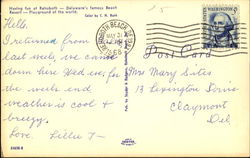 Having fun at Rehoboth — Delaware's famous Beach
Resort — Playground of the world.
Color by C. M. Buck
REHOBOTH BEACH
MAY 31
1968
WASHINGTON
5
Post Card
Hello,
I returned from
last week, we came
down here Wed eve, for
the week end
weather is cool &
breezy.
Love. Lillie
Mrs Mary
13 Lexington Drive
Claymont
Del.